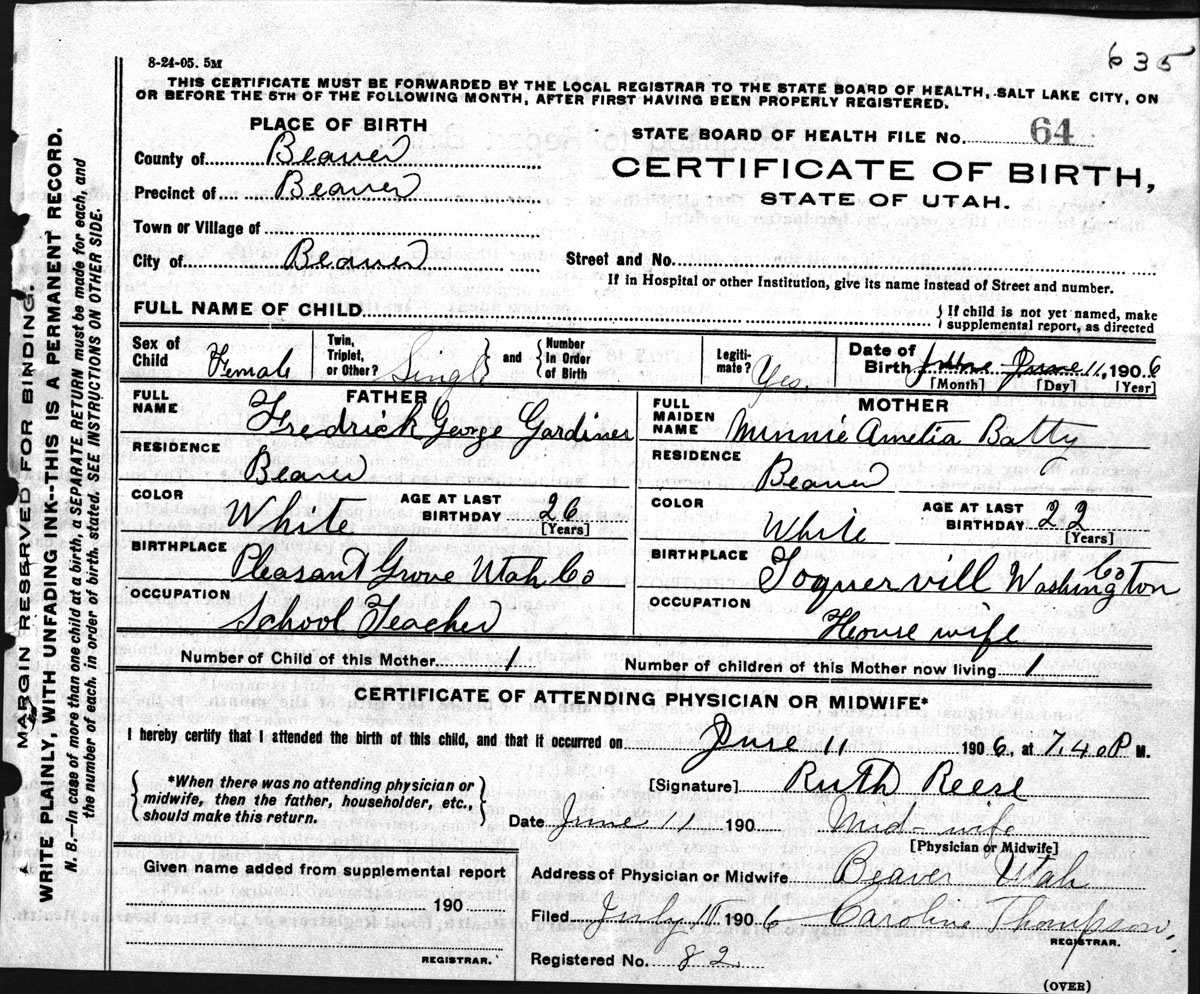 635
8-24-05. 5M
THIS CERTIFICATE MUST BE FORWARDED BY THE LOCAL REGISTRAR TO THE STATE BOARD OF HEALTH, SALT LAKE CITY, ON
OR BEFORE THE 5TH OF THE FOLLOWING MONTH, AFTER FIRST HAVING BEEN PROPERLY REGISTERED.
MARGIN RESERVED FOR BINDING.
WRITE PLAINLY, WITH UNFADING INK--THIS IS A PERMANENT RECORD.
N. B.—In case of more than one child at a birth, a SEPARATE RETURN must be made for each, and
the number of each, in order of birth, stated. SEE INSTRUCTIONS ON OTHER SIDE.
PLACE OF BIRTH
County of Beaver
Precinct of Beaver
Town or Village of
City of Beaver
STATE BOARD OF HEALTH FILE No. 64
CERTIFICATE OF BIRTH,
STATE OF UTAH.
Street and No.
If in Hospital or other Institution, give its name instead of Street and number.
FULL NAME OF CHILD
If child is not yet named, make
supplemental report, as directed
Sex of
Child Female
Twin,
Triplet,
or Other? Singl
and
Number
In Order
of Birth
Legiti-
mate? Yes.
Date of
Birth June 11, 1906
[Month] [Day] [Year]
FATHER
FULL
NAME Fredrick George Gardiner
RESIDENCE
Beaver
COLOR
White
AGE AT LAST
BIRTHDAY 26
[Years]
BIRTHPLACE
Pleasant Grove Utah Co
OCCUPATION
School Teacher
MOTHER
FULL
MAIDEN
NAME Minnie Amelia Batty
RESIDENCE
Beaver
COLOR
White
AGE AT LAST
BIRTHDAY 22
[Years]
BIRTHPLACE
Toquervill Washington Co
OCCUPATION
House wife
Number of Child of this Mother 1
Number of children of this Mother now living 1
CERTIFICATE OF ATTENDING PHYSICIAN OR MIDWIFE*
I hereby certify that I attended the birth of this child, and that it occurred on June 11 1906, at 7.40 P M.
*When there was no attending physician or
midwife, then the father, householder, etc.,
should make this return.
[Signature] Ruth Reese
Date June 11 190 Mid-wife
[Physician or Midwife]
Given name added from supplemental report
190
REGISTRAR.
Address of Physician or Midwife Beaver Utah
Filed July 1906 Caroline Thompson,
REGISTRAR.
Registered No. 82
(OVER)